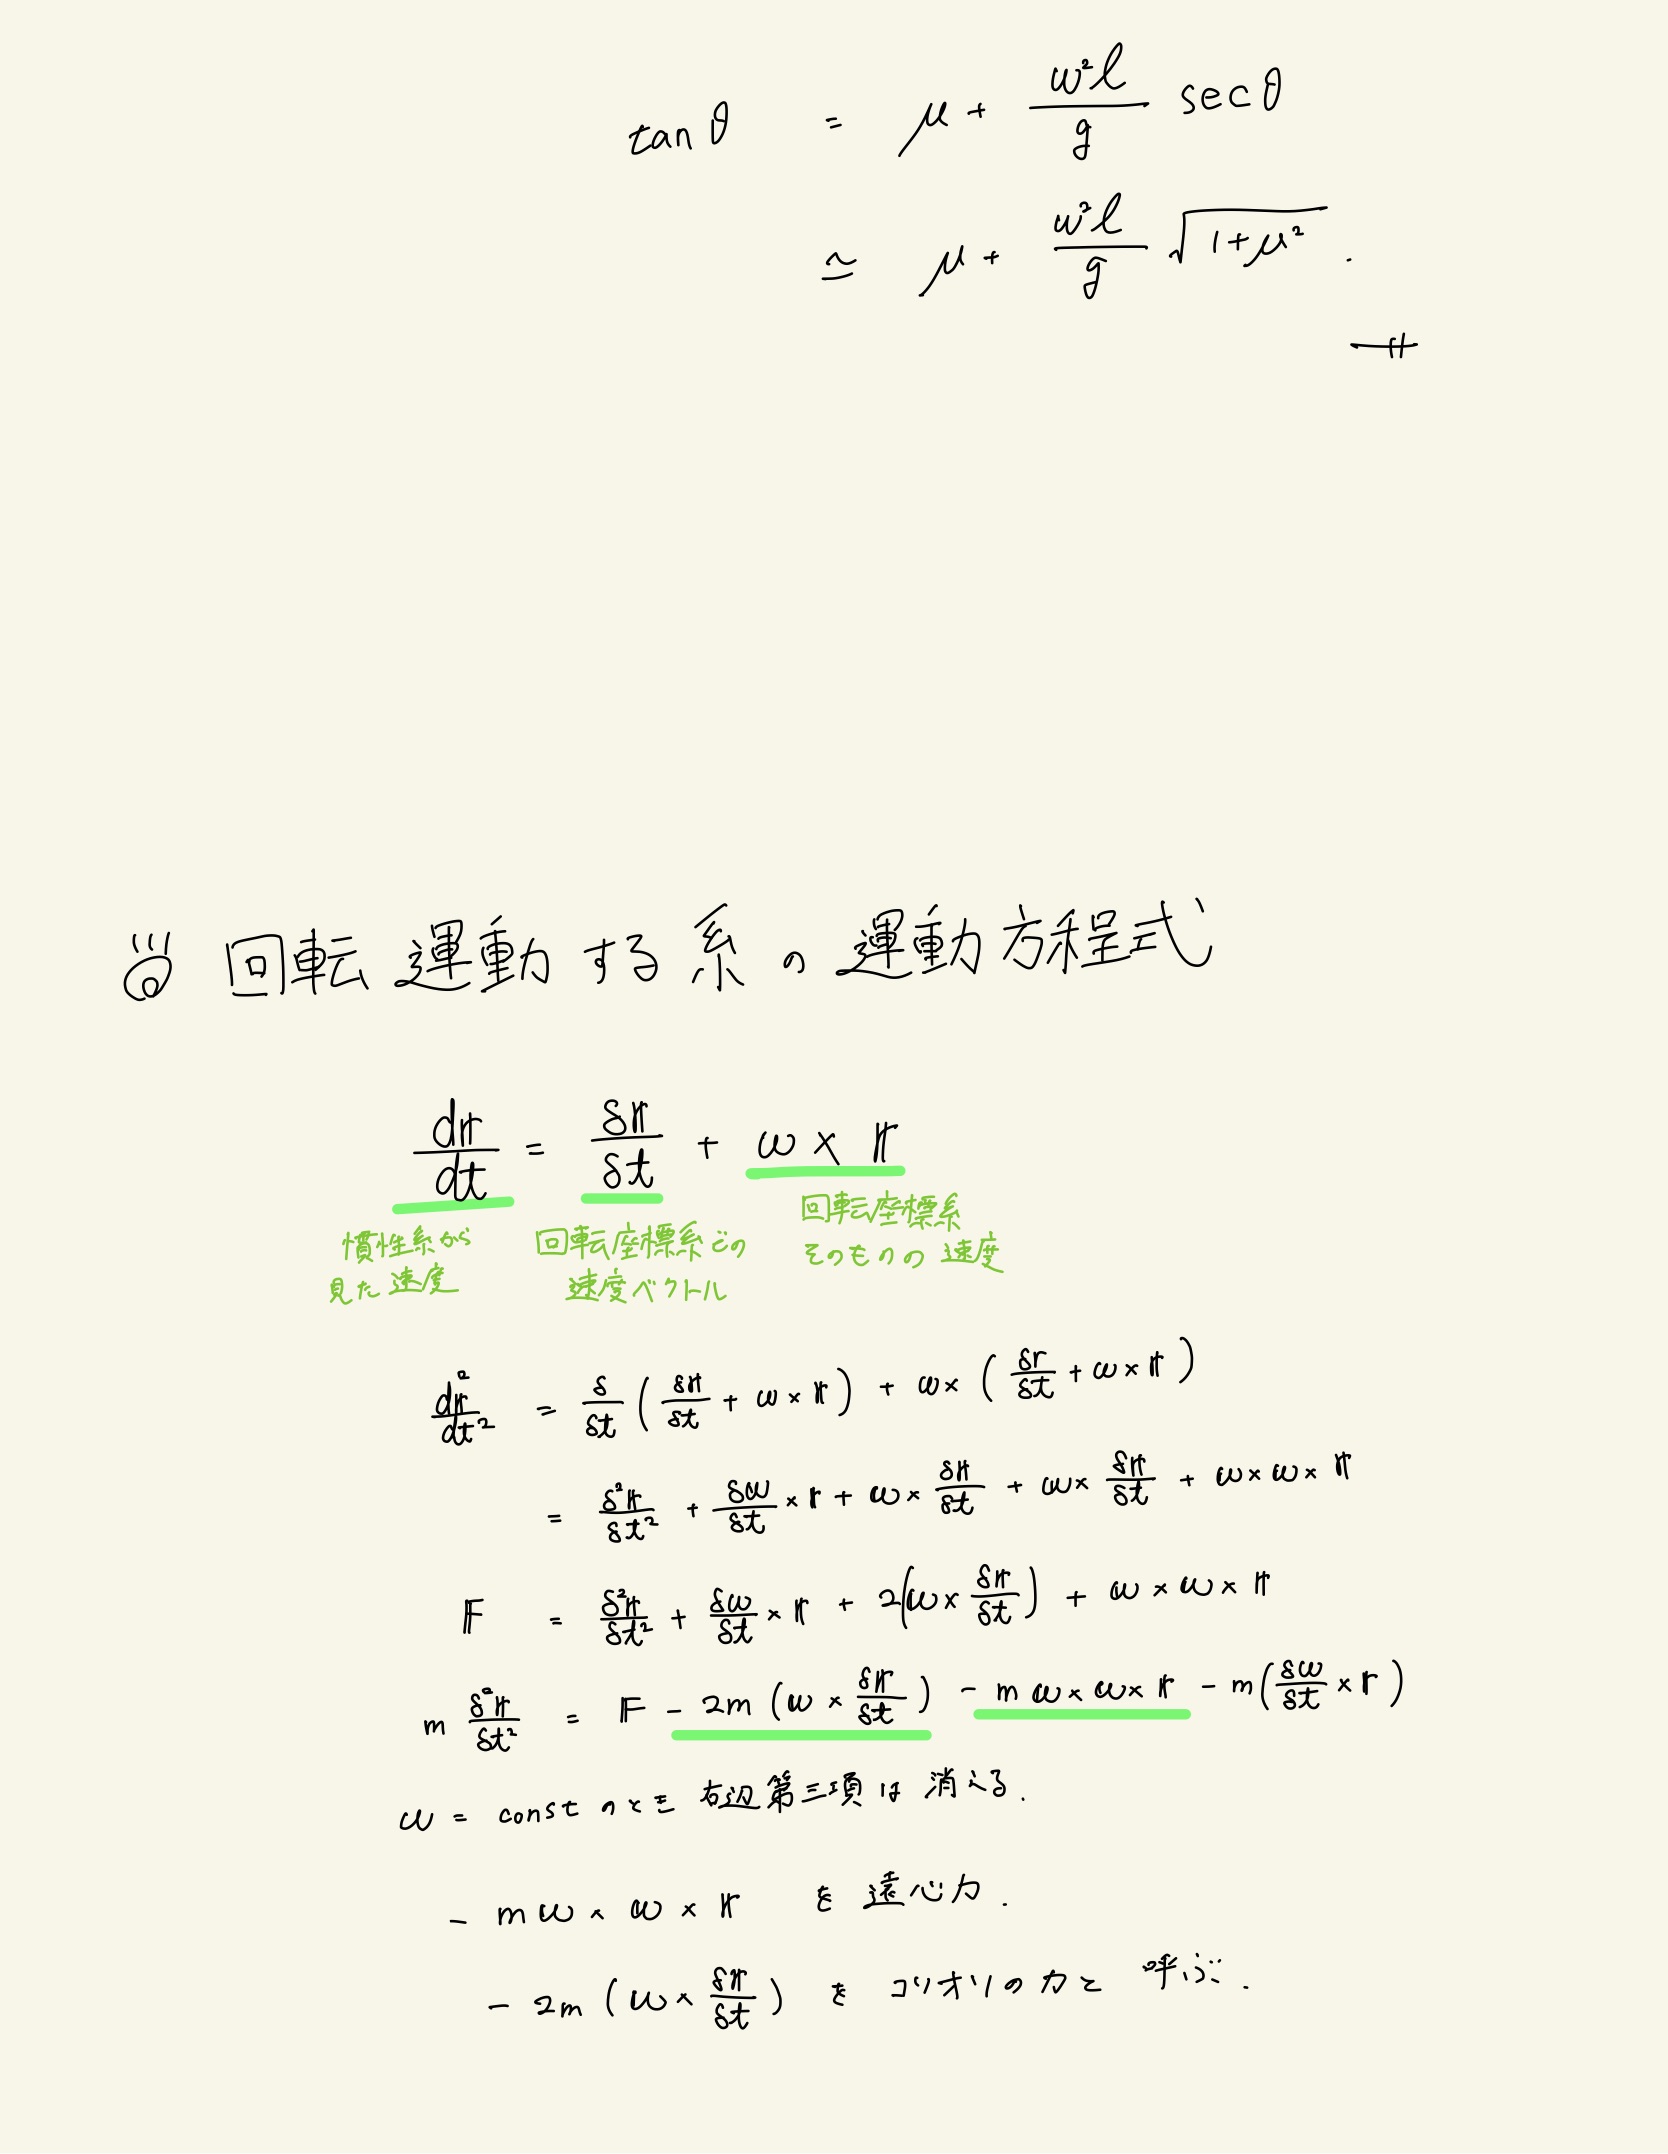 tanθ = μ + ω²l/g secθ
≃ μ + ω²l/g √(1+μ²) .
回転運動する系の運動方程式
dr/dt = δr/δt + ω × r
慣性系から
見た速度
回転座標系での
速度ベクトル
回転座標系
そのものの速度
dr²/dt² = δ/δt (δr/δt + ω × r) + ω × (δr/δt + ω × r)
= δ²r/δt² + δω/δt × r + ω × δr/δt + ω × δr/δt + ω × ω × r
F = δ²r/δt² + δω/δt × r + 2(ω × δr/δt) + ω × ω × r
m δ²r/δt² = F - 2m (ω × δr/δt) - m ω × ω × r - m(δω/δt × r)
ω = const のとき 右辺第三項は 消える.
- m ω × ω × r を 遠心力.
- 2m (ω × δr/δt) を コリオリの力と 呼ぶ.